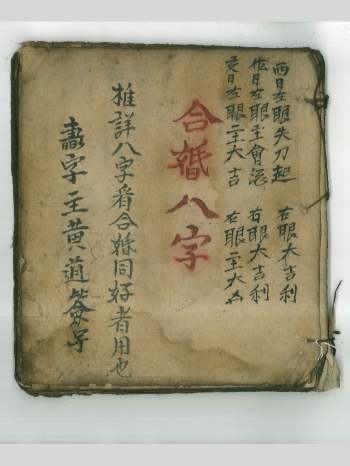 酉日左眼失刀起 右眼大吉利
戌日左眼主會 右眼大吉利
亥日左眼主大吉 右眼主大凶
合婚八字
推詳八字看合婚同好者用也
壽字主黃道簽子